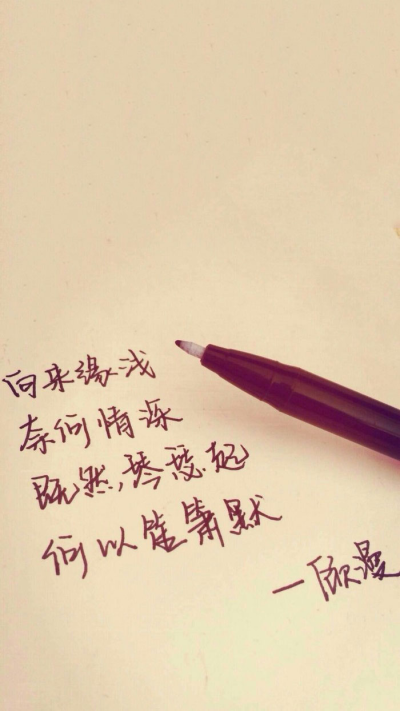 向来缘浅
奈何情深
既然,琴瑟起
何以笙箫默
一顾漫